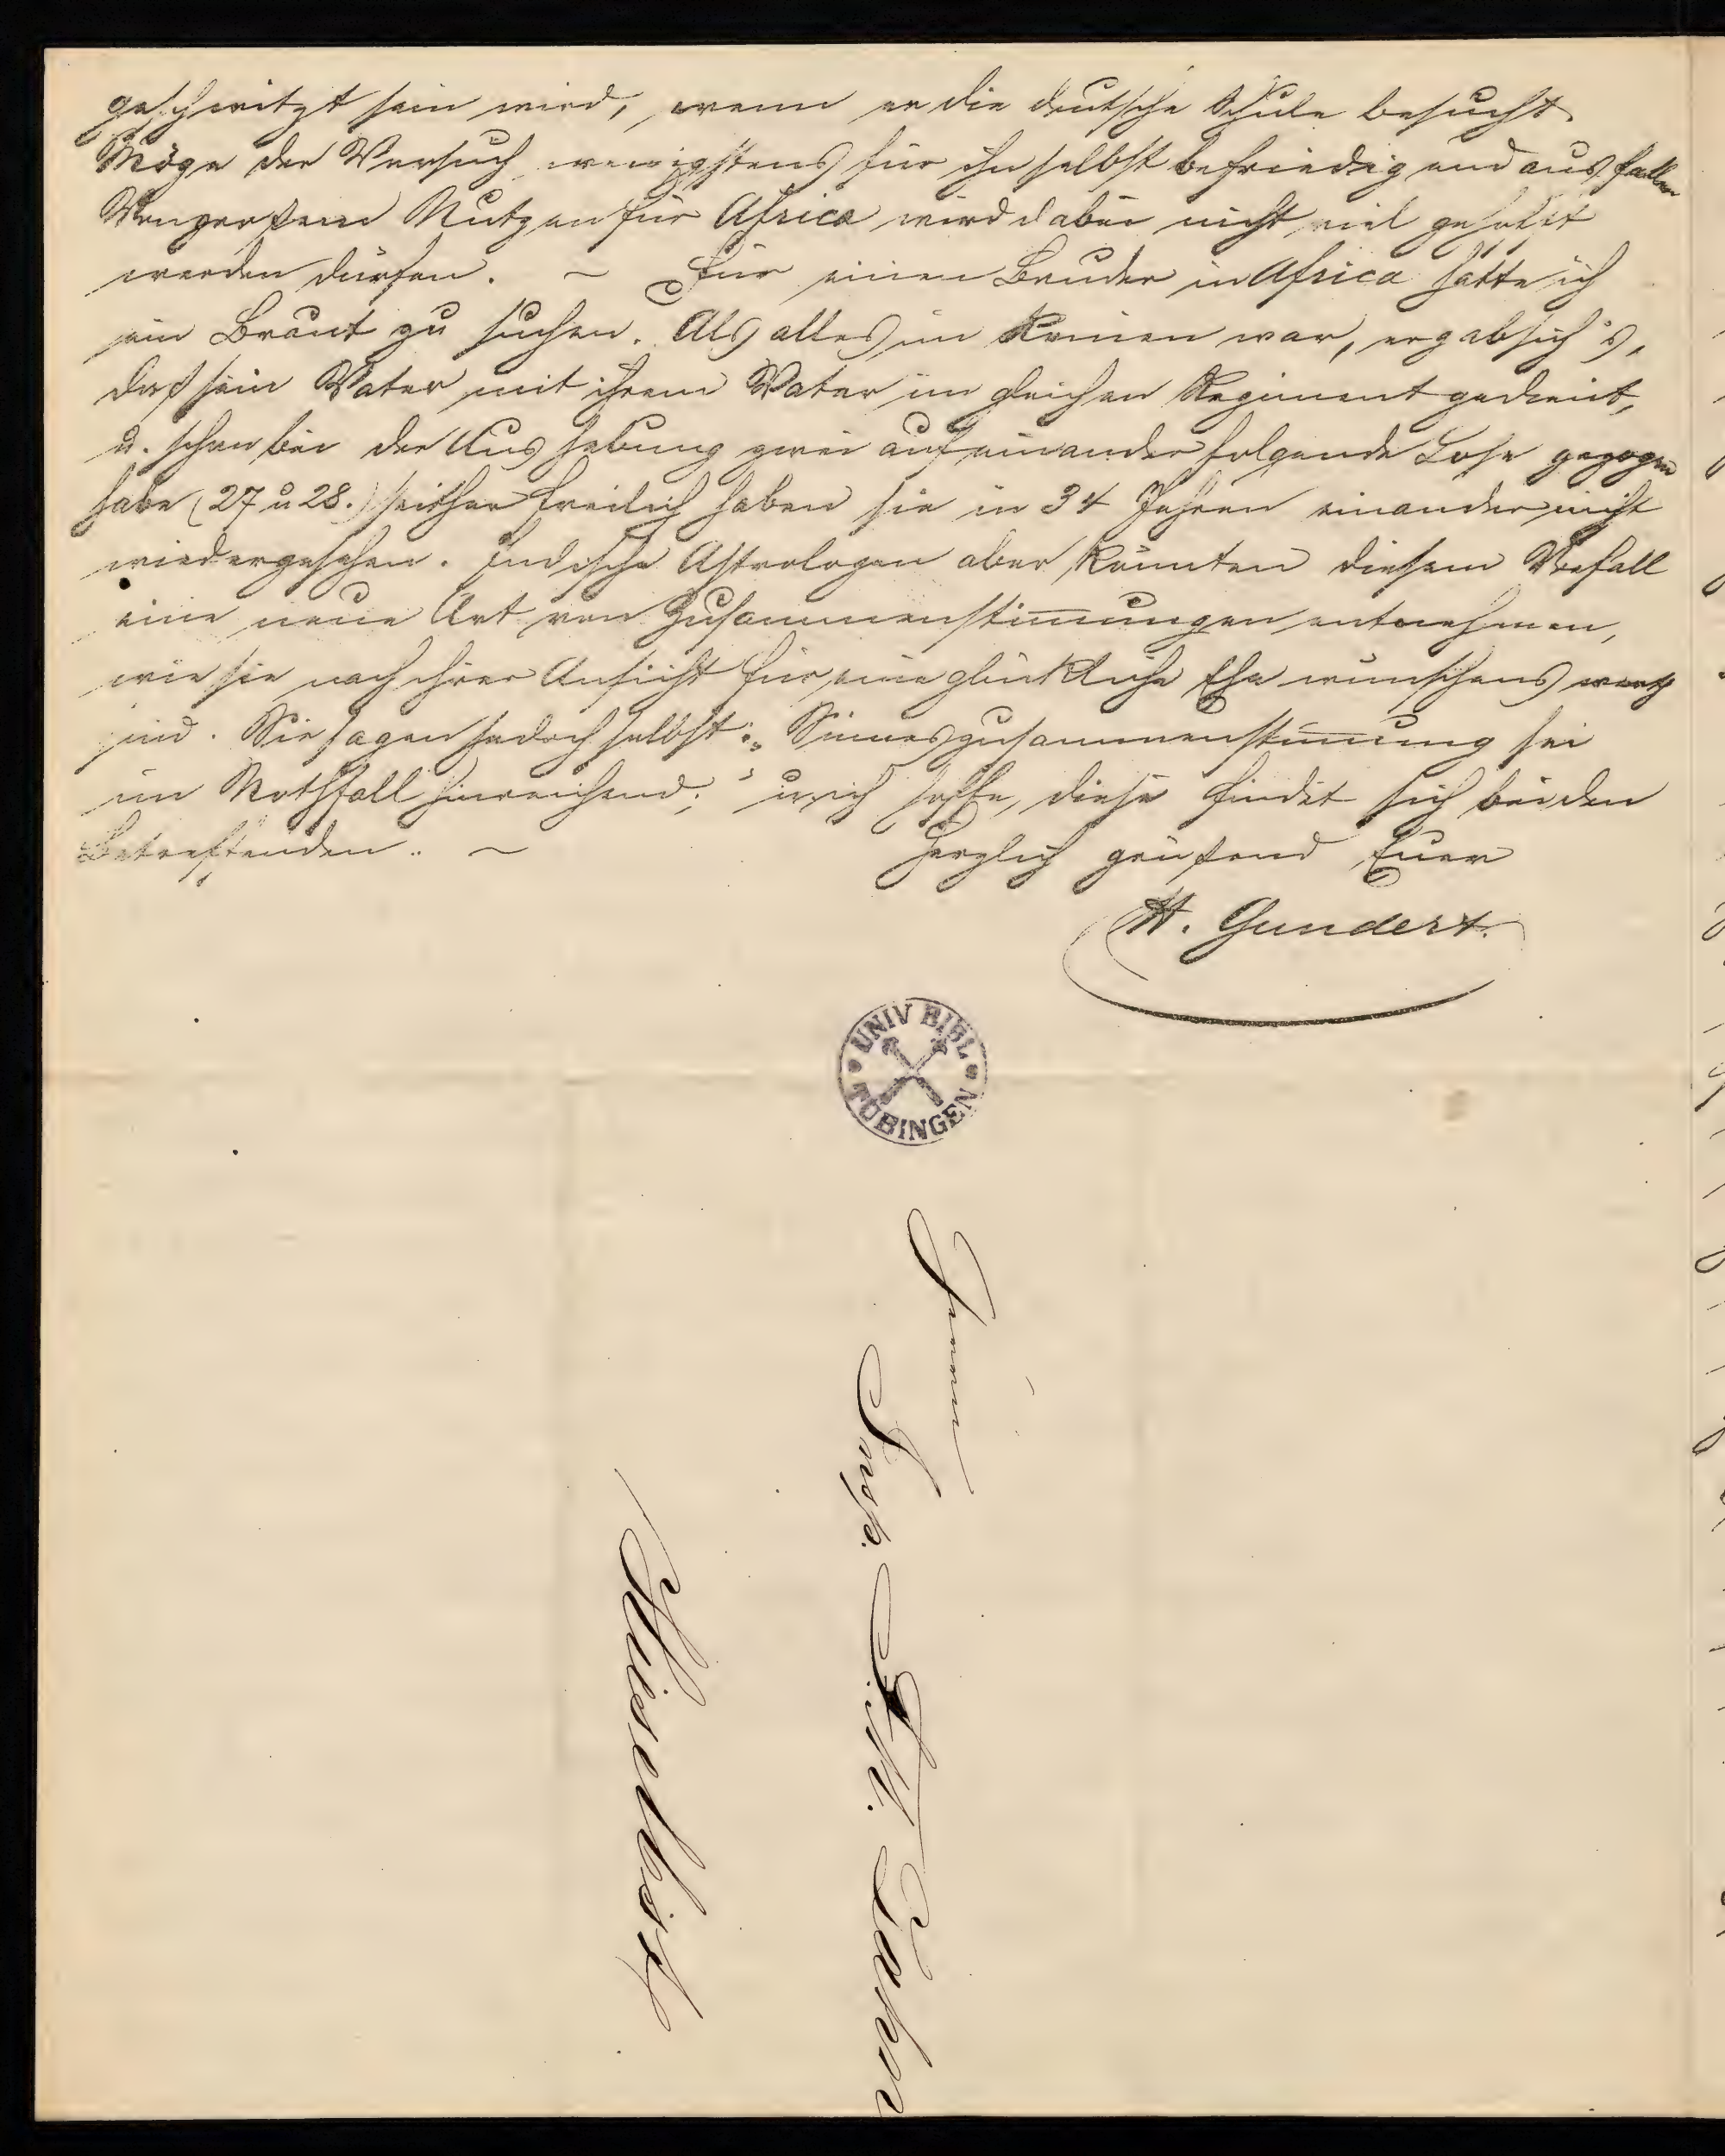 geschwitzt sein wird, wenn er die deutsche Schule besucht.
Möge der Versuch wenigstens für ihn selbst befriedigend ausfallen
Von großem Nutzen für Africa wird dabei nicht viel geredet
werden dürfen. ~ Für einen Bruder in Africa hatte ich
ein Braut zu suchen. Als alles im Reinen war, ergab sich's,
daß sein Vater mit ihrem Vater im gleichen Regiment gedient,
u. schon bei der Aushebung zwei aufeinander folgende Lose gezogen
habe (27 u 28.) seither freilich haben sie in 34 Jahren einander nicht
wiedergesehen. Indische Astrologen aber könnten diesem Vorfall
eine neue Art von Zusammenstimmungen entnehmen,
wie sie nach ihrer Ansicht für eine glückliche Ehe wünschenswerth
sind. Sie sagen jedoch selbst: „Sinneszusammenstimmung sei
im Nothfall hinreichend;" u. ich hoffe, diese findet sich bei den
Betreffenden. ~ Herzlich grüßend Euer
H. Gundert.
UNIV BIBL
TÜBINGEN
Herrn